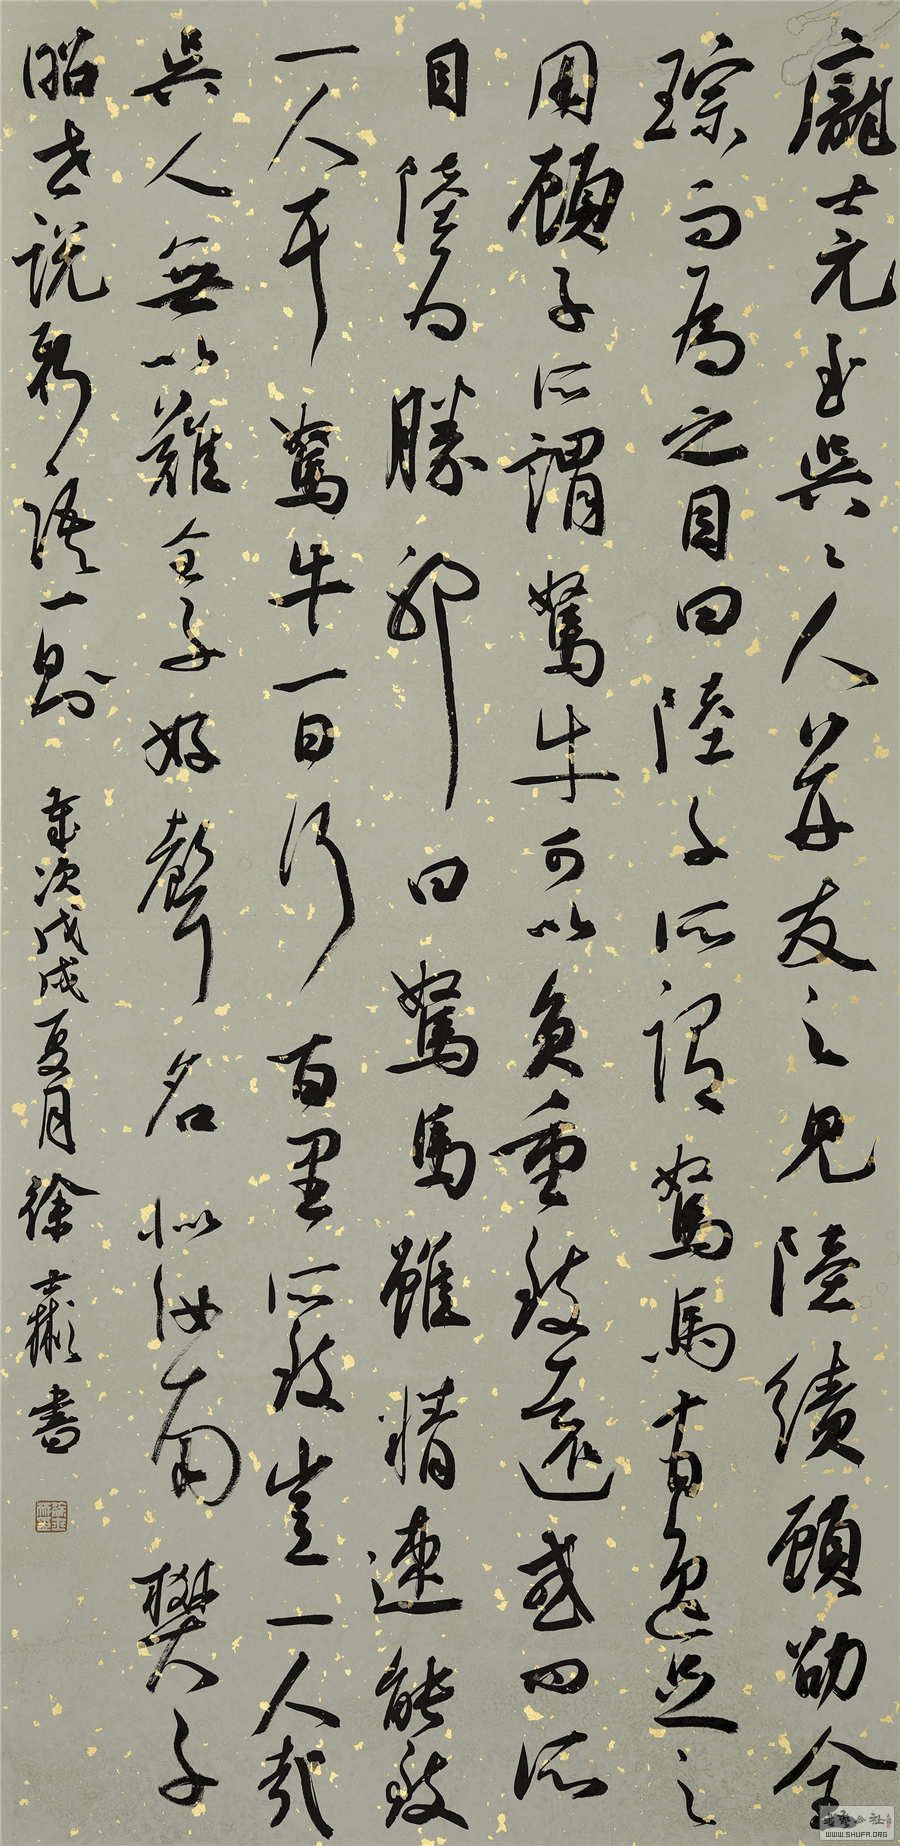 龐士元至吳〻人並友之見陸績顧劭全
琮而為之目曰陸子所謂駑馬有逸足之
用顧子所謂駑牛可以負重致遠或問所
目陸為勝邪曰駑馬雖精速能致
一人耳駑牛一日行百里所致豈一人哉
吳人無以難全子好聲名似汝南樊子
昭世說新語一則 歲次戊戌夏月徐書
WWW.SHUFA.ORG